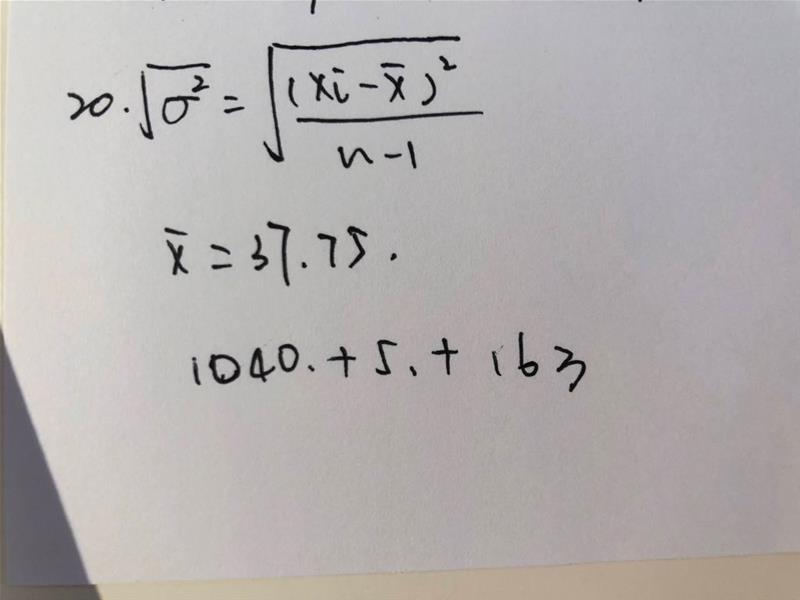 20. √σ² = √(xi - x̄)² / n-1
x̄ = 37.75.
1040. + 5. + 163